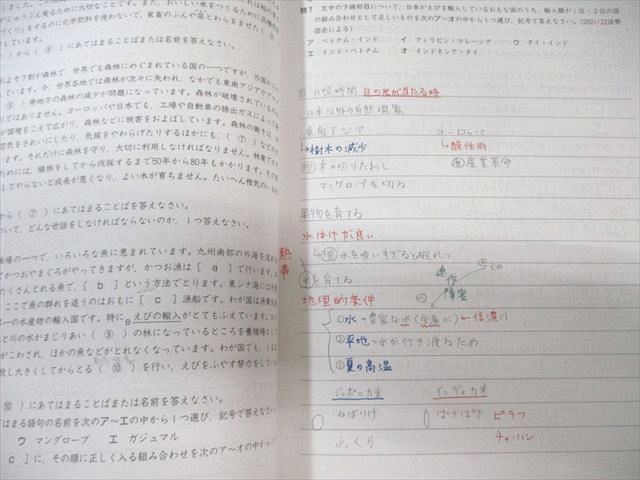 に大切なことです。また、おいしい米をつくるために
づくり」をするのに化学肥料を使わないで、家畜のふんや尿とわらをま
る。
）から（ ④ ）にあてはまることばまたは名前を答えなさい。
およそ7割が森林で、世界でも森林にめぐまれている国の一つですが、外国から
ています。今、世界各地では森林が次々に失われ、なかでも東南アジアやアフ
⑤ ）寒地方の森林の減少が問題になっています。森林が破壊されているの
ではありません。ヨーロッパや日本でも、工場や自動車の排出ガスによって
が国境をこえて広がり、森林などに被害をおよぼしています。森林の働きは、
空気をきれいにしたり、気候をやわらげたりするほかにも、（ ⑦ ）などの
います。それだけに森林を守り、大切に利用しなければなりません。林業で
ためには、植林をしてから伐採するまで50年から80年もかかります。その
してやらないと成長が悪くなり、よい木が育ちません。たいへん根気のいる
から（ ⑦ ）にあてはまることばを答えなさい。
ついて、どんな世話をしなければならないのか、1つ答えなさい。
漁場の一つで、いろいろな魚に恵まれています。九州南部の外海を流れる
てかつおやまぐろがやってきますが、かつお漁は［ a ］で行います。
たくさんとれる魚で、［ b ］という方法でとります。東シナ海には大
ここで魚の群れを追うのはおもに［ c ］漁船です。わが国は漁業生
一の水産物の輸入国です。特にBえびの輸入がとてもふえています。
と川の水がまじりあい（ ⑨ ）の林になっているところを養殖場として
がこわされ、ほかの魚などがとれなくなっています。わが国でも、くる
殺し大きくしてからとる（ ⑩ ）を行い、えびをふやす努力をしてい
⑩ ）にあてはまることばまたは名前を答えなさい。
はまる語句の名前を次のア～エの中から1つ選び、記号で答えなさい。
ウ マングローブ エ ガジュマル
c ］に、その順に正しく入る組み合わせを次のア～オの中から1
問7 文中の下線部Bについて、日本がえびを輸入しているおもな国のうち、輸入額が1位・2位の国
の組み合わせとして正しいものを次のア～オの中から1つ選び、記号で答えなさい。（2021/22国勢
図会による）
ア ベトナム・インド イ フィリピン・マレーシア ウ タイ・インド
エ インド・ベトナム オ インドネシア・タイ
日照時間 日の光が当たる時
日本以外の自然現象
東南アジア ヨーロッパ
↳樹木の減少 ↳酸性雨
木の切りたおし 産業革命
マングローブを切る
果物を育てる
水はけが良い
↳水を吸いすぎると
熱帯
米を育てる
連作障害
地理的条件
①水→豊富な水（雪
②平地→水が行き渡るため
③夏の高温
ジャポニカ米 インディカ米
ねばりけ ぱさぱさ ピラフ
ふっくら チャーハン